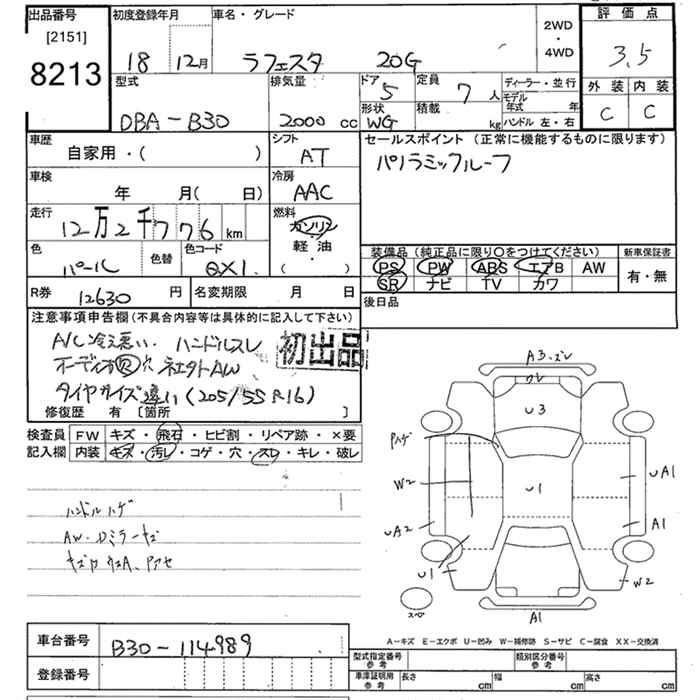 出品番号 [2151] 8213
初度登録年月 18 12月
車名・グレード ラフェスタ 20G
2WD・4WD
評価点 3.5
外装 C 内装 C
型式 DBA-B30
排気量 2000 cc
ドア 5
形状 WG
定員 7 人
積載 kg
ディーラー・並行
モデル年式 年
ハンドル 左・右
車歴 自家用・( )
シフト AT
セールスポイント (正常に機能するものに限ります)
パノラミックルーフ
車検 年 月( 日)
冷房 AAC
走行 12万2千776 km
燃料 ガソリン 軽油 ( ・ )
色 パール 色替 色コード QX1.
装備品 (純正品に限り〇をつけてください)
PS PW ABS エアB AW
SR ナビ TV カワ
新車保証書 有・無
R券 12630 円 名変期限 月 日
後日品
注意事項申告欄 (不具合内容等は具体的に記入して下さい)
A/C冷え悪い. ハンドルスレ
オーディオ 穴 社外AW
タイヤサイズ違い (205/55R16)
初出品
修復歴 有 [箇所 ]
検査員記入欄
FW キズ・飛石・ヒビ割・リペア跡・×要
内装 キズ・汚レ・コゲ・穴・スレ・キレ・破レ
ハンドルハゲ
AW・Dミラーキズ
A3.ズレ
ワレ
U3
Pハゲ
W2
U1
UA1
UA2
A1
U1
W2
A1
スペア
A-キズ E-エクボ U-凹み W-補修跡 S-サビ C-腐食 XX-交換済
車台番号 B30-114989
登録番号
型式指定番号 参考 類別区分番号 参考
車庫証明用 参考 長さ cm 幅 cm 高さ cm